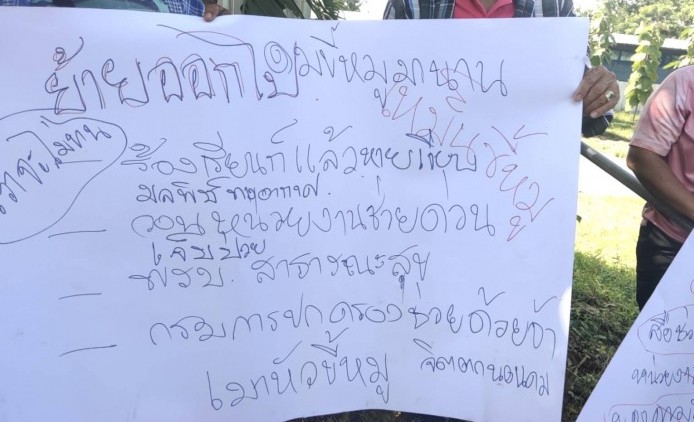 ย้ายออกไป ดมขี้หมูมานาน
เหม็นขี้หมู
เราจะไม่ทน
ร้องเรียนก็แล้วหายเงียบ
มลพิษทางอากาศ
วอนหน่วยงานช่วยด่วน
เจ็บป่วย
พรบ. สาธารณะสุข
กรมการปกครองช่วยด้วยจ้า
เมาหัวขี้หมู
สื่อช่ว
หน่วยงา